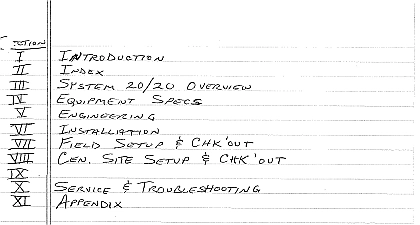 ECTION
I INTRODUCTION
II INDEX
III SYSTEM 20/20 OVERVIEW
IV EQUIPMENT SPECS
V ENGINEERING
VI INSTALLATION
VII FIELD SETUP & CHK'OUT
VIII CEN. SITE SETUP & CHK'OUT
IX
X SERVICE & TROUBLESHOOTING
XI APPENDIX